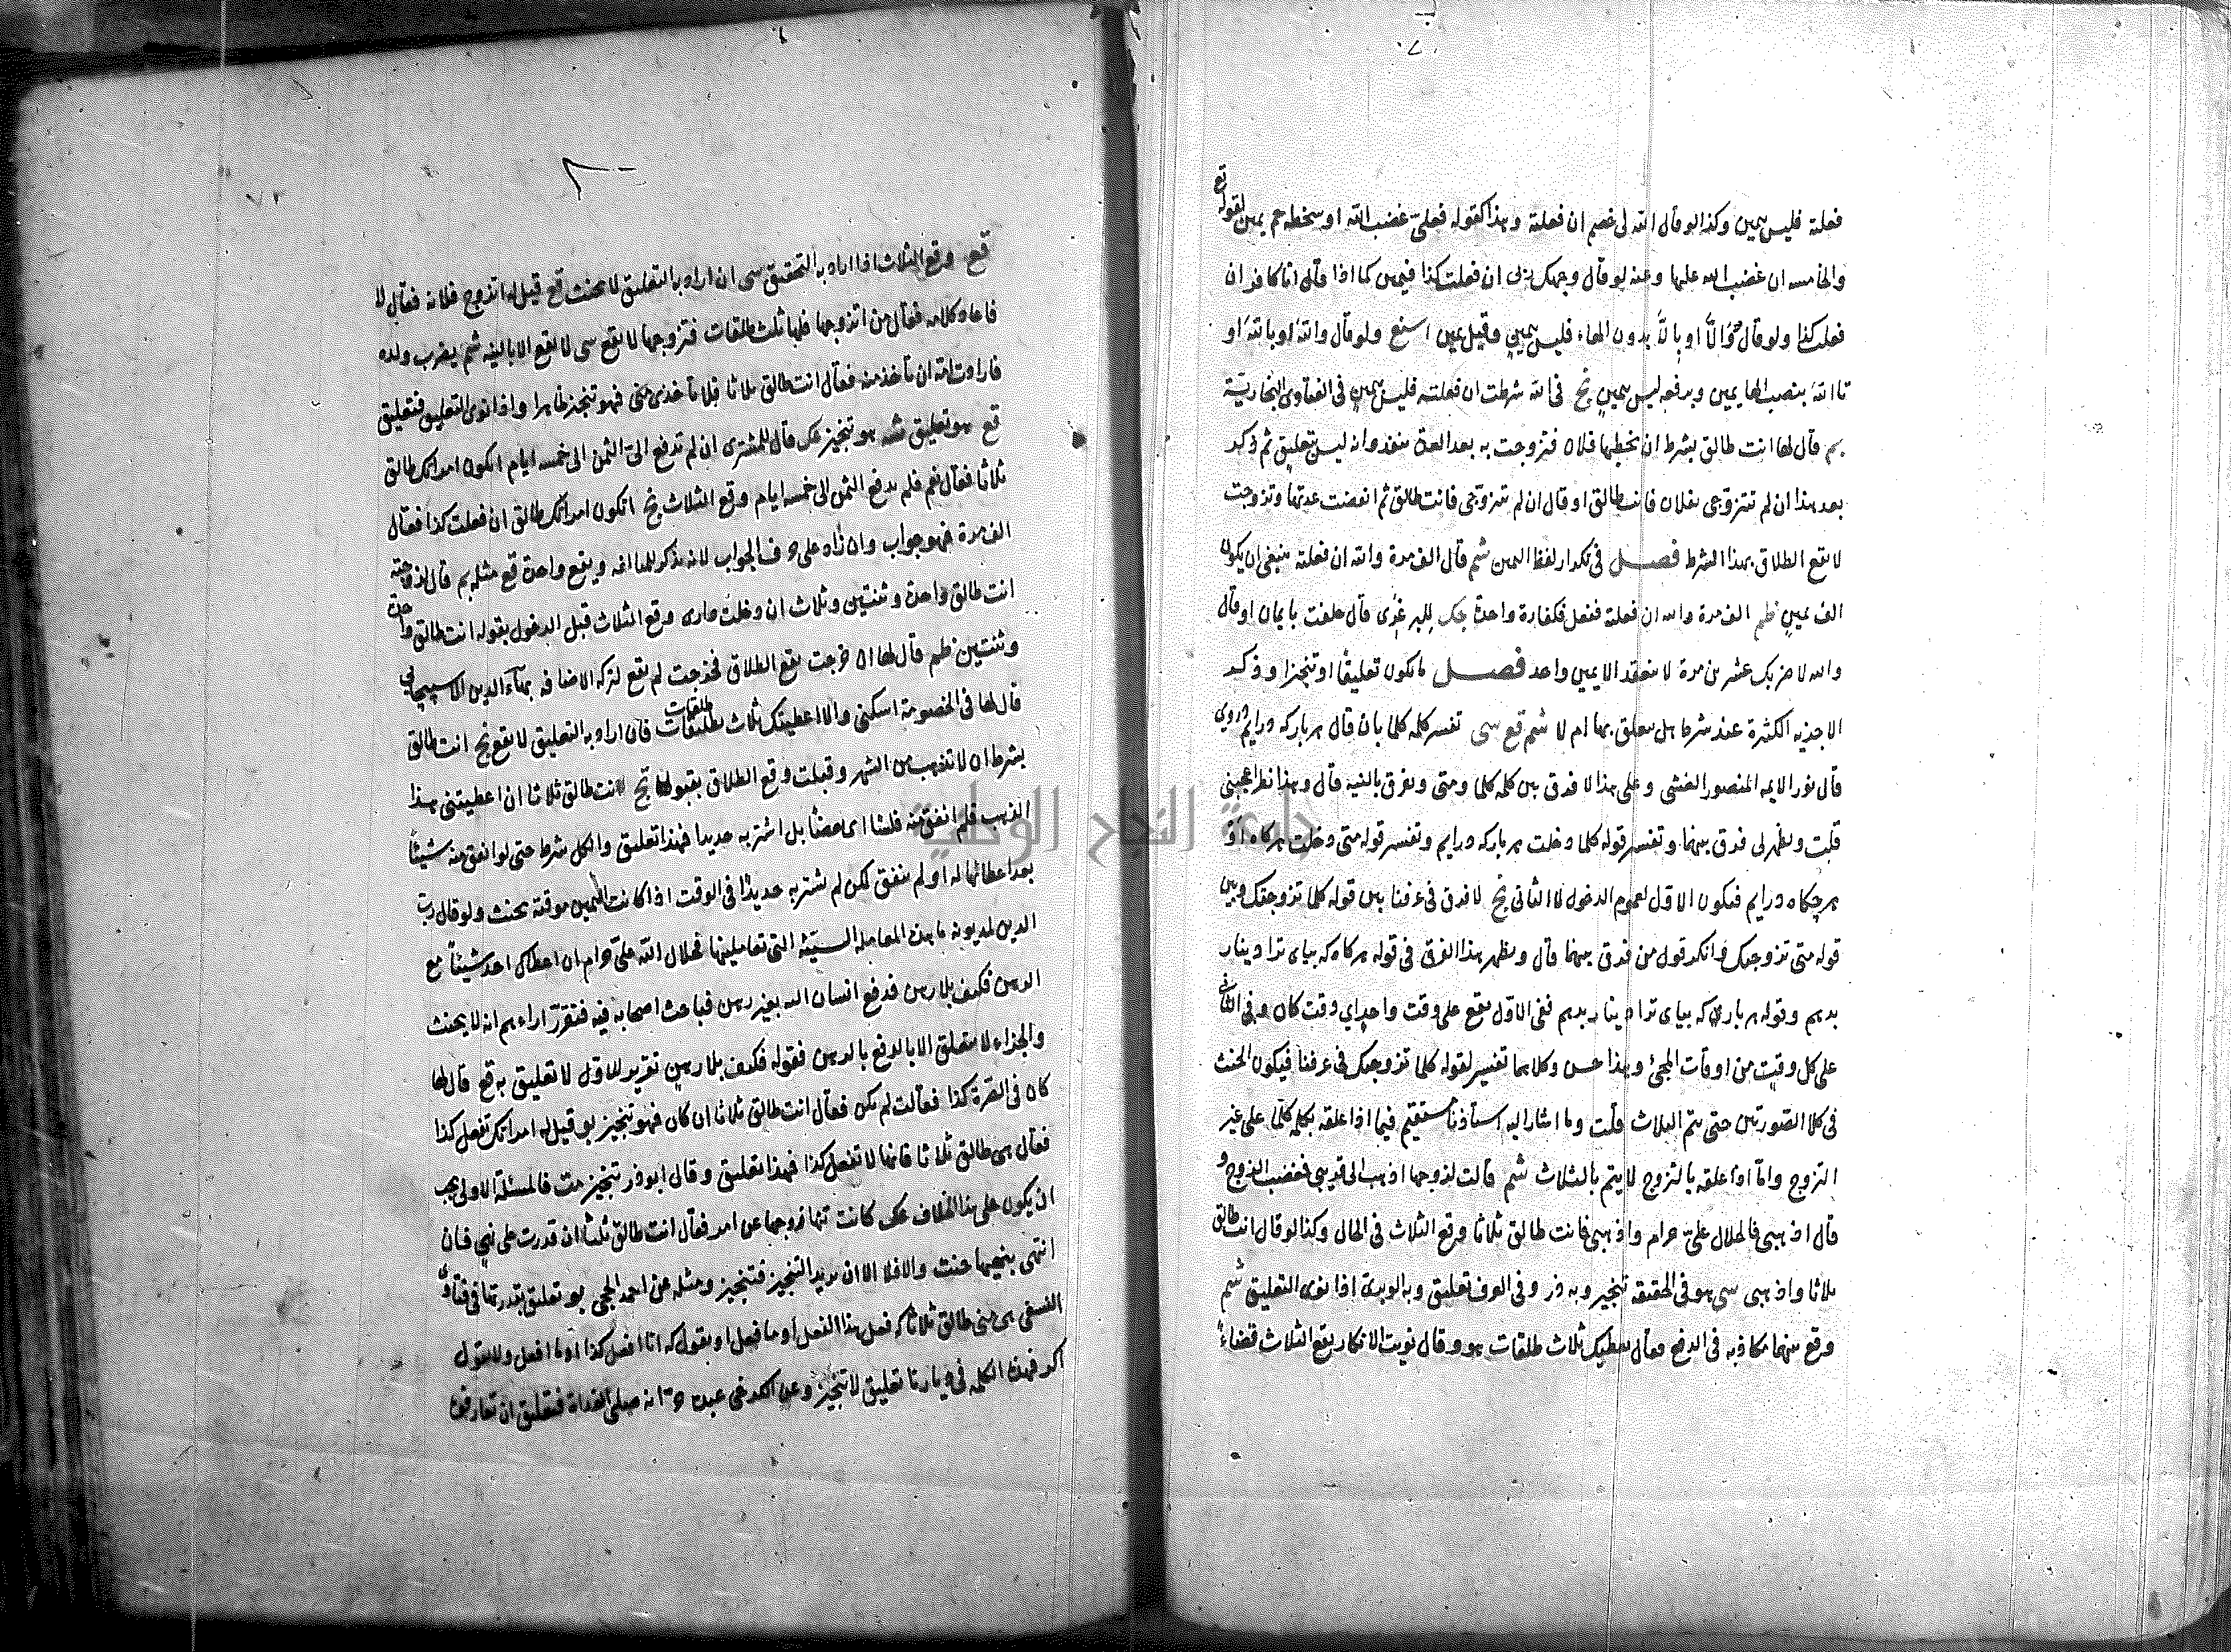 فعلته فليس بيمين وكذا لو قال الله لى خصم ان فعلته وهذا كقوله فعلىّ غضب الله او سخطه حم يمين لقوله تع
والخامسه ان غضب الله عليها وعنه لو قال وجهك لزنى ان فعلت كذا فيمين كما اذا قال انا كافر ان
فعلت كذا ولو قال واللّا او باللّا بدون الهاء فليس بيمين وقيل يمين اسنع ولو قال والله او بالله او
تا الله بنصب الها يمين وبرفعه ليس بيمين نح فى لله شرطت ان فعلته فليس بيمين فى الفتاوى البخاريّة
بم قال لها انت طالق بشرط ان يخطبها فلان فتزوجت به بعد العدة ينفذ وانه ليس بتعليق ثم ذكر
بعد هذا ان لم تتزوجى بفلان فانت طالق او قال ان لم تتزوجى فانت طالق ثم انقضت عدتها وتزوجت
لا يقع الطلاق بهذا الشرط فصــل فى تكرار لفظ اليمين شم قال الف مرة والله ان فعلته ينبغى ان يكون
الف يمين ظم الف مرة والله ان فعلته ففعل فكفارة واحدة قال حلفت بايمان او قال
والله لا ضربك عشرين مرة لا ينعقد الا يمين واحد فصــل ما يكون تعليقًا او تنجيزا وذكر
الاجزيه الكثيرة عند شرط هل يتعلق بها ام لا شم قع سى تفسير كلمه كلما بان قال هر باركه درايم وروى
قال نور الايمه المنصور وعلى هذا لا فرق بين كلمه كلما ومتى ويفرق بالنيه قال وهذا نظر اعجبنى
قلت ويظهر لى فرق بينهما وتفسير قوله كلما دخلت هر باركه درايم وتفسير قوله متى دخلت هركاه او
هر چكاه درايم فيكون الاول لعموم الدخول لا الثانى نح لا فرق فى عرفنا بين قوله كلما تزوجتك وبين
قوله متى تزوجتك وانكر قول من فرق بينهما قال ويظهر هذا الفرق فى قوله هركاه كه بياى ترا دينار
بدهم وقوله هر بارى كه بياى ترا دينار بدهم ففى الاوّل يقع على وقت واحد اي وقت كان وفى الثانى
على كل وقت من اوقات المجئ وهذا حسن وكلاهما تفسير لقوله كلما تزوجتك فى عرفنا فيكون الحنث
فى كلا الصّورتين حتى يتم الثلاث قلت وما اشار اليه استاذنا مستقيم فيما اذا علقه بكلمه كلما على غير
التزوج وامّا اذا علقه بالتزوج لا يتم بالثلاث شم قالت لزوجها اذهب الى قريبى فغضب الزوج و
قال اذهبى فالحلال علىّ حرام واذهبى فانت طالق ثلاثا وقع الثلاث فى الحال وكذا لو قال انت طالق
ثلاثا واذهبى سى هو فى الحقيقه تنجيز وبه ذر وفى العرف تعليق وبه اذا نوى التعليق شم
وقع بينهما مكاذبه فى الدفع فقال يعطيك ثلاث طلقات هو وقال نويت الانكار يقع الثلاث قضاءً
قع وقع الثلاث اذا اراد به التحقيق سى ان اراد به التعليق لا يحنث قع قيل له اتزوج فلانه فقال لا
فاعاد كلامه فقال من اتزوجها فلها ثلث طلقات فتزوجها لا يقع سى لا يقع الا بالنيه شم يضرب ولده
فارادت امّه ان تأخذ منه فقال انت طالق ثلاثا فلا تأخذى منى فهو تنجيز ظاهرا واذا نوى التعليق فتعليق
قع هو تعليق شه هو تنجيز عك قال للمشترى ان لم تدفع الىّ الثمن الى خمسه ايام اتكون امراتك طالق
ثلاثا فقال نعم فلم يدفع الثمن الى خمسه ايام وقع الثلاث نح اتكون امراتك طالق ان فعلت كذا فقال
الف مرة فهو جواب وان زاد على الجواب لانه يذكر للمبالغه ويقع واحدة قع مثله بم قال لزوجته
انت طالق واحدة وثنتين وثلاث ان دخلت دارى وقع الثلاث قبل الدخول بقوله انت طالق واحدة
وثنتين ظم قال لها ان خرجت يقع الطلاق فخرجت لم يقع لتركه الاضافه بهاء الدين الاسبيجابى
قال لها فى الخصومة اسكتى والا اعطيتك ثلاث تطليقات طلقات فان اراد به التعليق لا يقع نح انت طالق
بشرط ان لا تذهب من الشهر وقبلت وقع الطلاق بقبولها نح انت طالق ثلاثا ان اعطيتنى هذا
الذهب فلم انفق منه فلسًا اى بعضًا بل اشتر به حديدا فهذا تعليق والكل شرط حتى لو انفق منه شيئًا
بعد اعطائها له او لم ينفق لكن لم يشتر به حديدًا فى الوقت اذا كانت اليمين موقته يحنث ولو قال رب
الدين لمديونه ما هذه المعامله السيّئه التى تعاملينها فحلال الله علىّ حرام ان اعطاك احد شيئاً مع
الرهن فكيف بلا رهن فدفع انسان اليه بغير رهن فباحث اصحابه فيه فتقرّر اراءهم انه لا يحنث
والجزاء لا يتعلق الا بالدفع بالرهن فقوله فكيف بلا رهن تقرير للاول لا تعليق به قع قال لها
كان فى كذا فقالت لم يكن فقال انت طالق ثلاثا ان كان فهو تنجيز بو قيل له امراتك تفعل كذا
فقال هى طالق ثلاثا فانها لا تفعل كذا فهذا تعليق وقال ابوذر تنجيز مت فالمسئله الاولى يجب
ان يكون على هذا الخلاف عك كانت تنها زوجها عن امر فقال انت طالق ثلثًا ان قدرت على نهيى فان
انتهى بنهيها حنث والا فلا الا ان يريد التنجيز فتنجيز ومثله عن احمد الحجى بو تعليق بقدرتها فى فتاوى
النسفى هى منى طالق ثلاثا كه فعل هذا الفعل او ما فعل او يقول كه انا افعل كذا او ما افعل ولا يقول
اكر فهذه الكلمه فى ديارنا تعليق لا تنجيز وعن الكرخى عبده حر انه صلى الغداة فتعليق ان تعارفوه